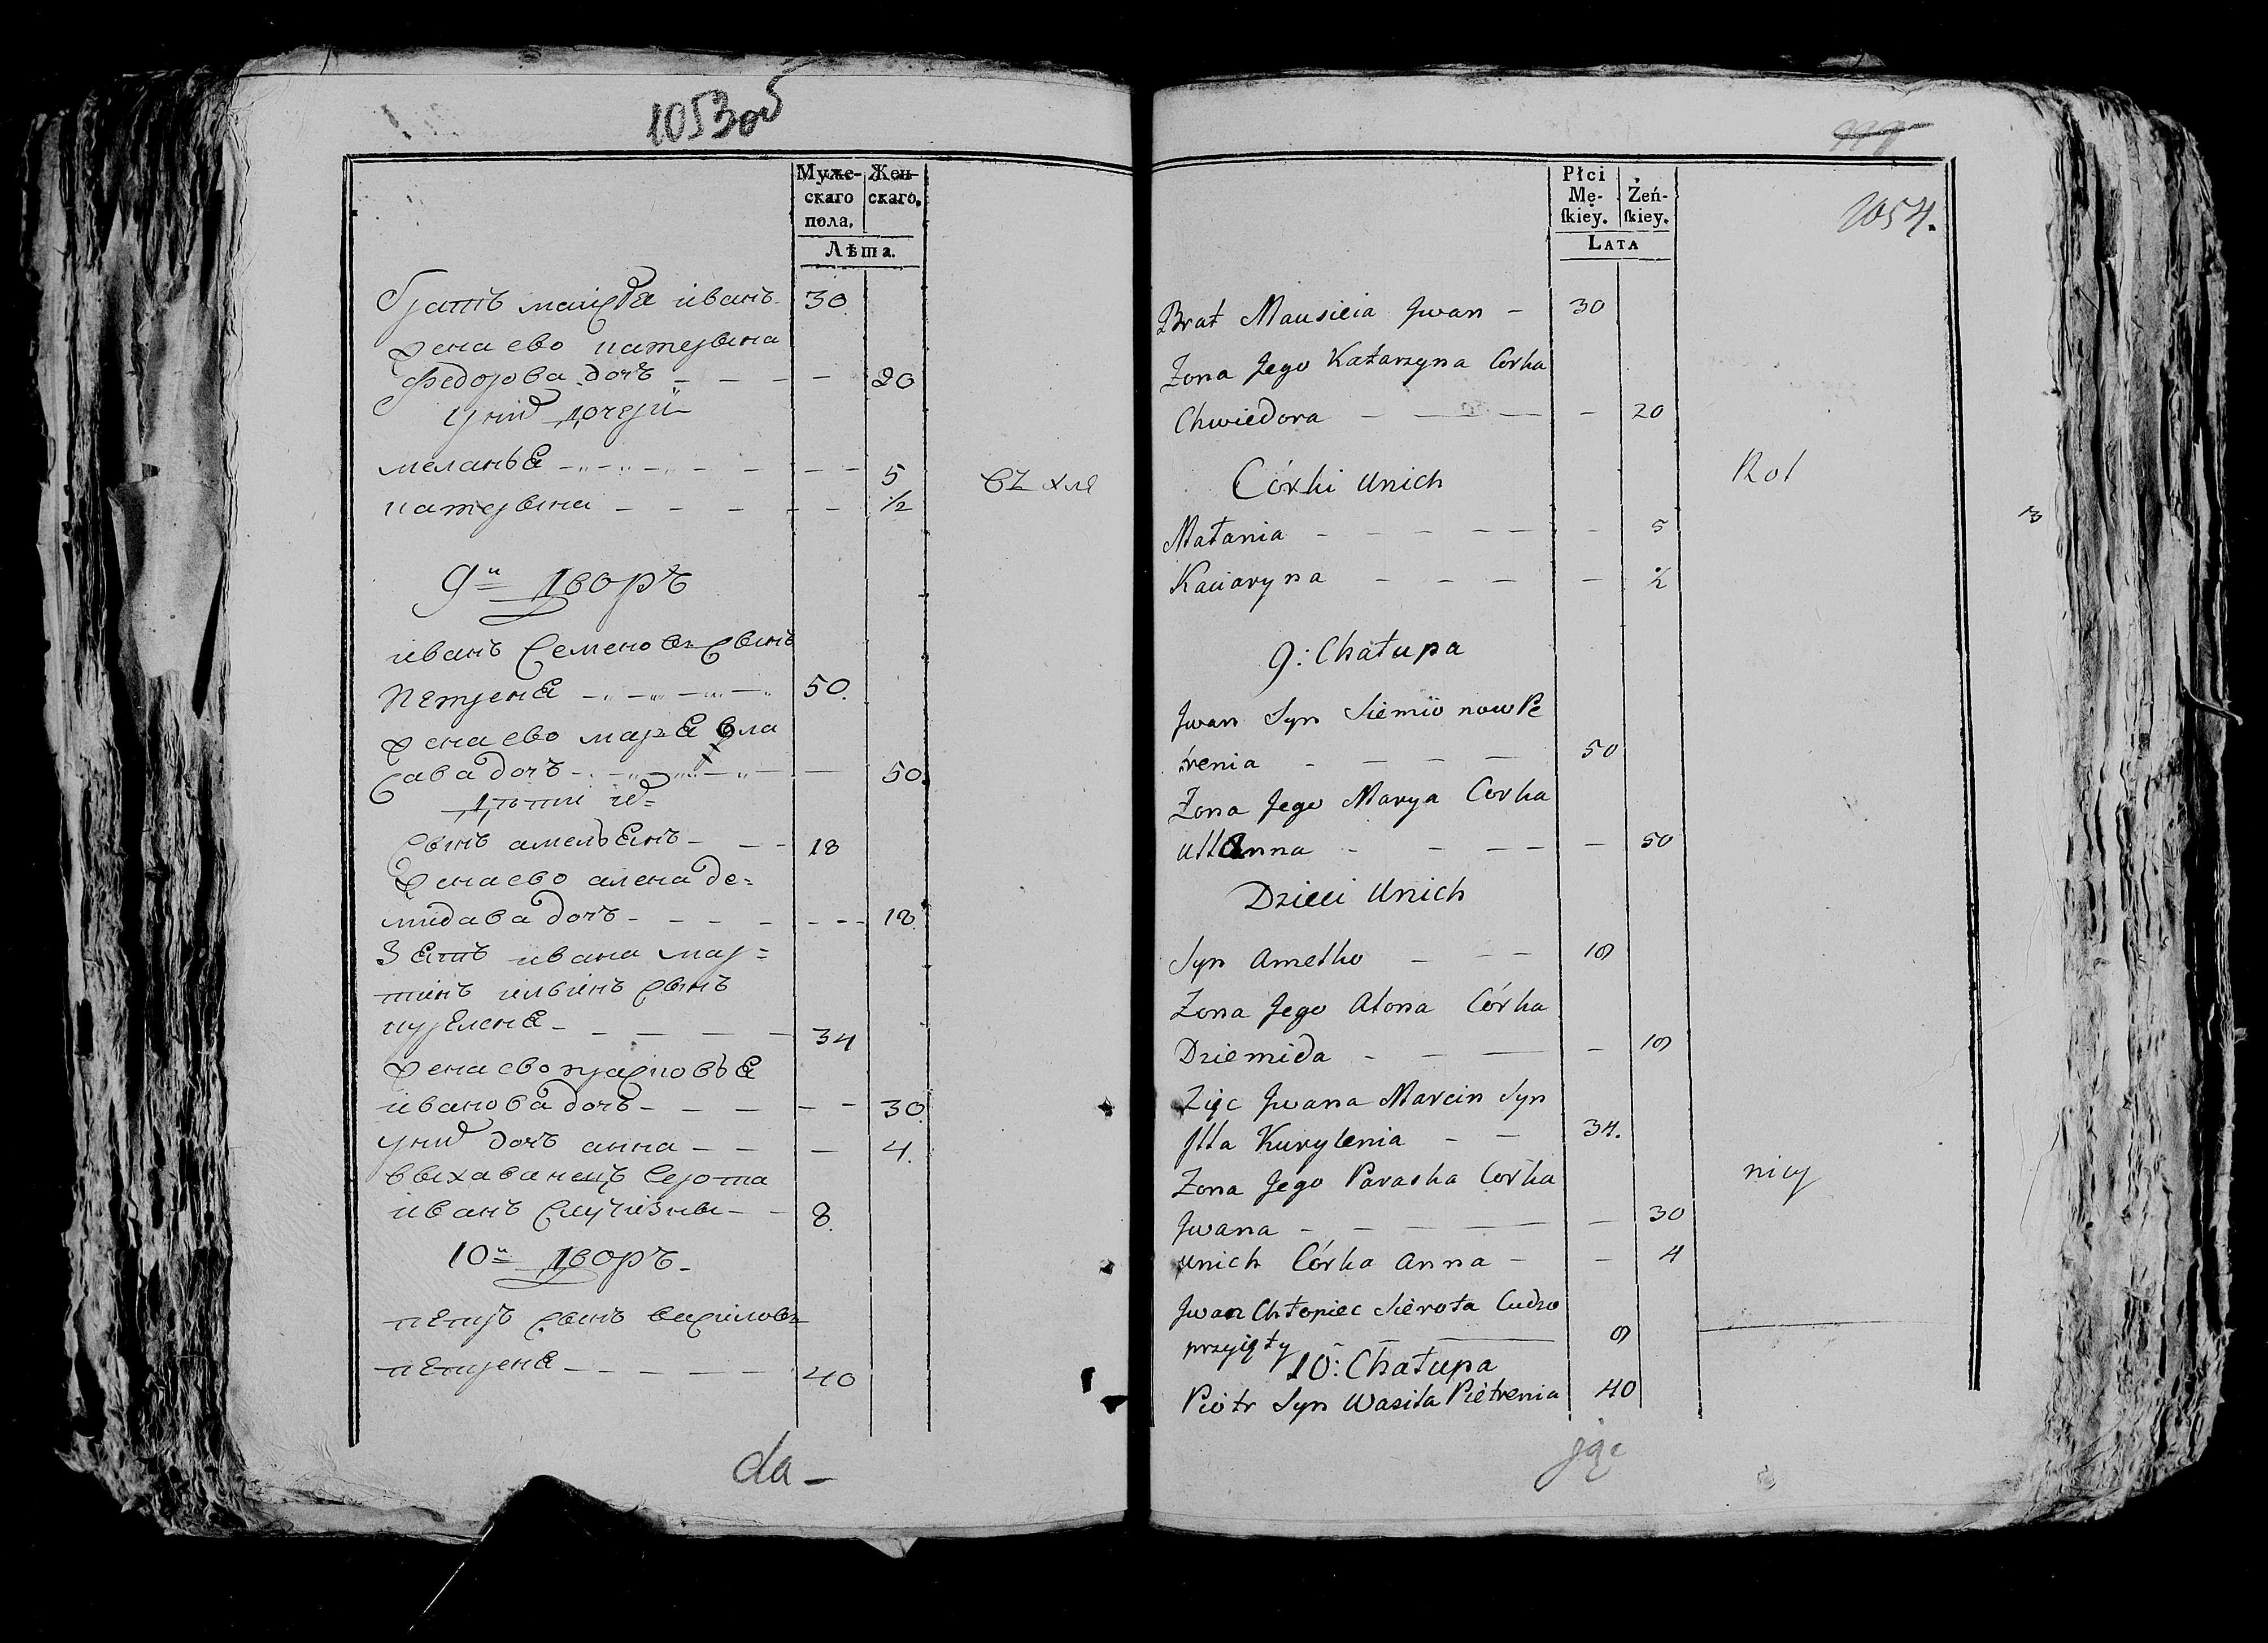 1053об
Муже-
скаго
пола.
Жен-
скаго.
Лѣта.
братъ маисѣя иванъ 30
жена ево катерына
федорова дочъ – – – – 20
унихъ дочери
меланья – – – – – – 5
катерына – – – – – ½
въ хле
9й дворъ
иванъ семеновъ сынъ
петреня – – – – 50.
жена ево марья ула
сава дочъ – – – – – 50.
дѣти их
сынъ амельянъ – – – 18
жена ево алена де=
мидава дочъ – – – – – – 18.
Зять ивана мар=
тинъ ильинъ сынъ
куреленя – – – – – 34
жена ево прасковья
иванова дочъ – – – – – 30.
уних дочъ анна – – – 4.
выхаванецъ сирота
иванъ – – 8.
10й дворъ
петръ сынъ василовъ
петреня – – – – – 40
da –
1054.
Płci
Mę-
ſkiey.
Żeń-
ſkiey.
LATA
Brat Mausieia Jwan – 30
Żona Jego Katarzyna Corka
Chwiedora – – – – 20
Córki Unich
Rol
Małania – – – – – – 5
Kaciaryna – – – – ½
9: Chałupa
Jwan Syn Siemionow Pe
trenia – – – – 50
Żona Jego Marya Corka
Ullanna – – – – – 50
Dzieci Unich
Syn Amelko – – – 18
Żona Jego Alona Córka
Dziemida – – – – 18
Zięc Jwana Marcin Syn
Jlla Kurylenia – – 34.
Żona Jego Paraska Corka
nicy
Jwana – – – – – – 30
unich Córka Anna – – 4
Jwan Chłopiec Sierota Cudzo
przyięty – – 8
10: Chałupa
Piotr Syn Wasila Pietrenia 40
jąc